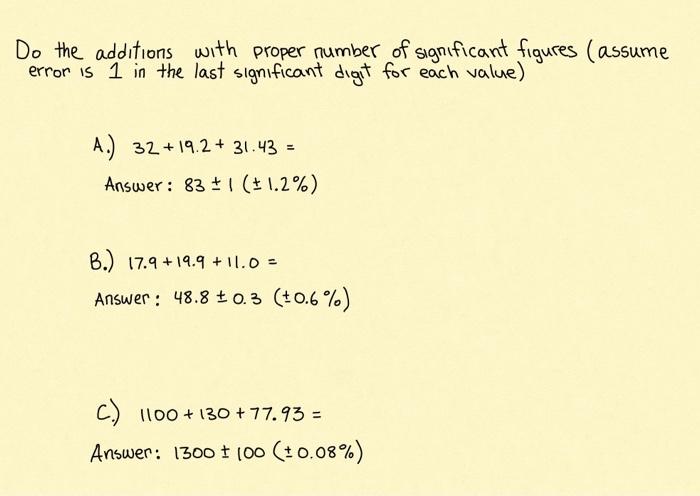 Do the additions with proper number of significant figures (assume
error is 1 in the last significant digit for each value)
A.) 32 + 19.2 + 31.43 =
Answer: 83 ± 1 (± 1.2%)
B.) 17.9 + 19.9 + 11.0 =
Answer: 48.8 ± 0.3 (±0.6%)
C.) 1100 + 130 + 77.93 =
Answer: 1300 ± 100 (±0.08%)